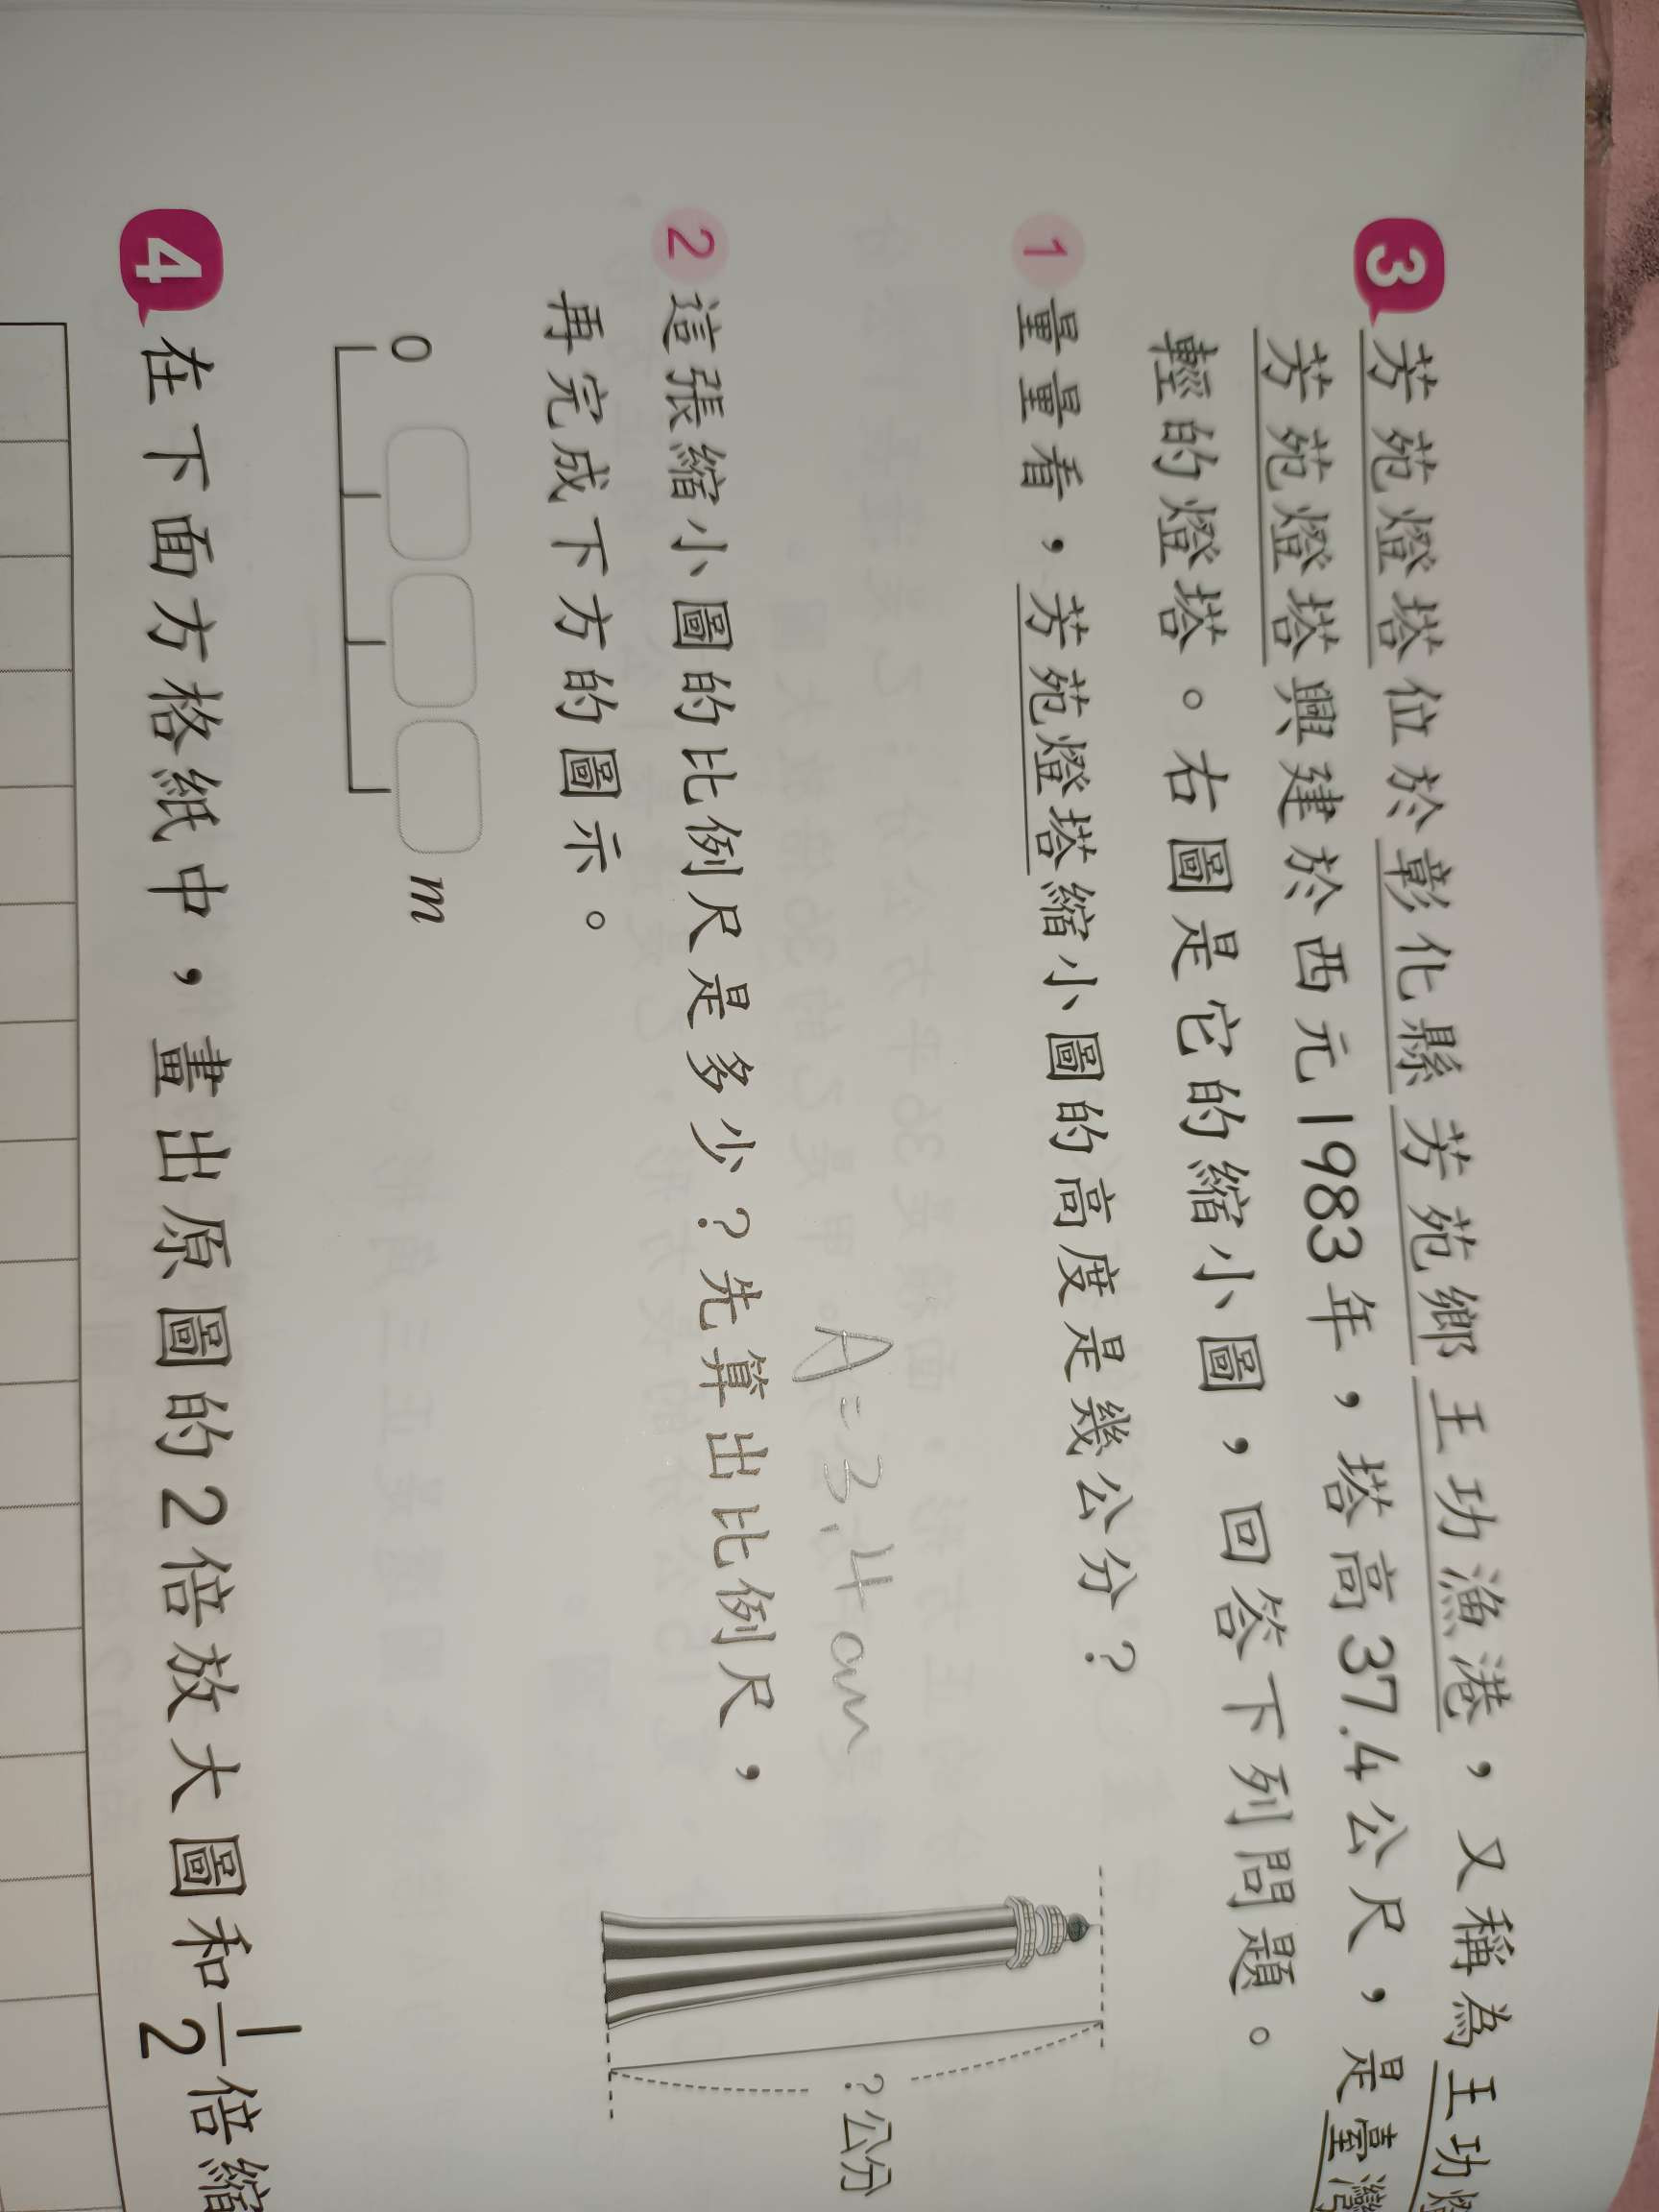 3 芳苑燈塔位於彰化縣芳苑鄉王功漁港,又稱為王功
芳苑燈塔興建於西元1983年,塔高37.4公尺,是臺灣
輕的燈塔。右圖是它的縮小圖,回答下列問題。
1 量量看,芳苑燈塔縮小圖的高度是幾公分?
A=3.4cm
?公分
2 這張縮小圖的比例尺是多少?先算出比例尺,
再完成下方的圖示。
0 m
4 在下面方格紙中,畫出原圖的2倍放大圖和1/2倍縮